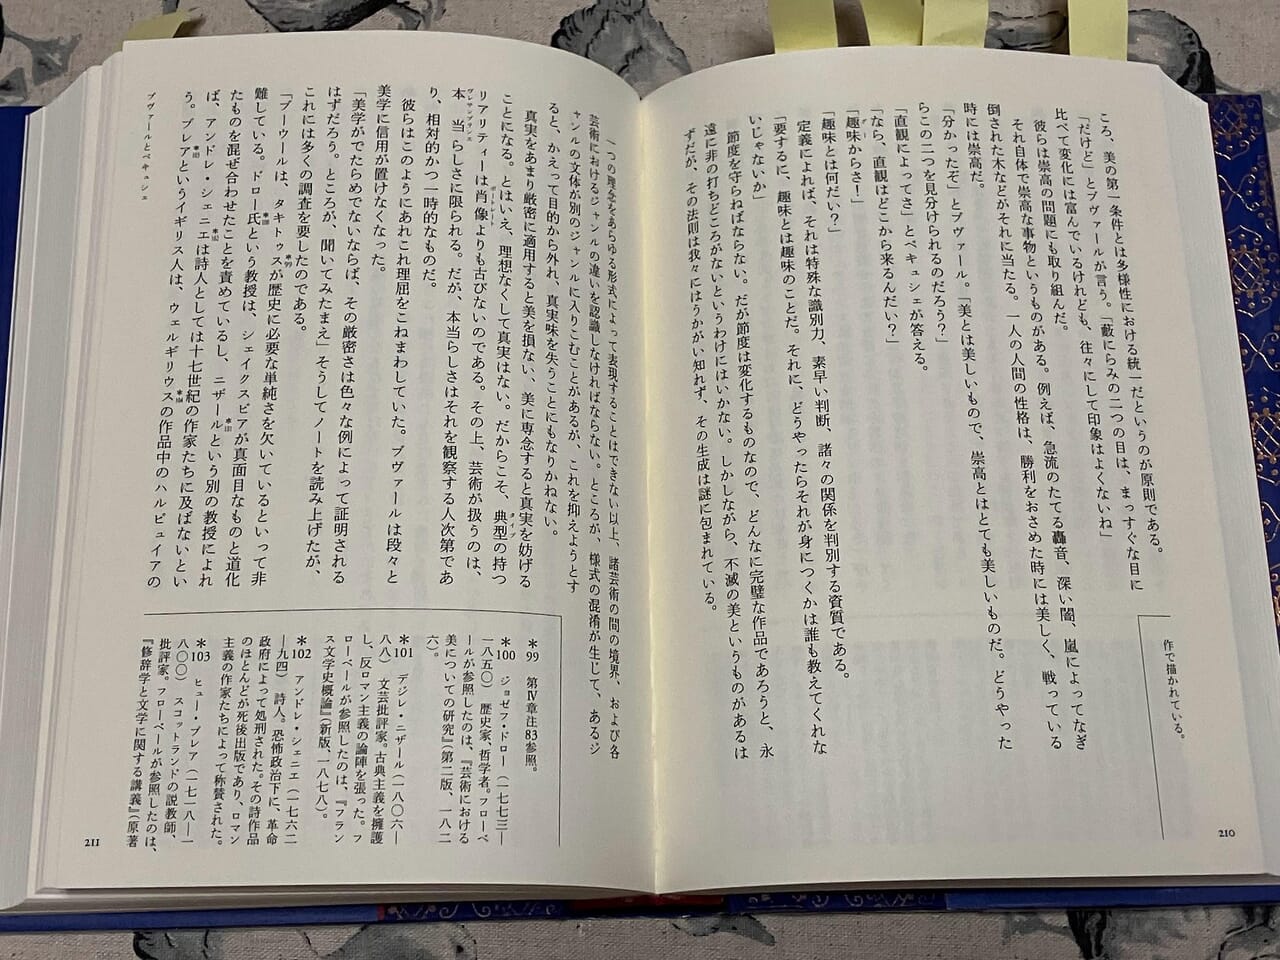 ころ、美の第一条件とは多様性における統一だというのが原則である。
「だけど」とブヴァールが言う。「藪にらみの二つの目は、まっすぐな目に
比べて変化には富んでいるけれども、往々にして印象はよくないね」
彼らは崇高の問題にも取り組んだ。
それ自体で崇高な事物というものがある。例えば、急流のたてる轟音、深い闇、嵐によってなぎ
倒された木などがそれに当たる。一人の人間の性格は、勝利をおさめた時には美しく、戦っている
時には崇高だ。
「分かったぞ」とブヴァール。「美とは美しいもので、崇高とはとても美しいものだ。どうやった
らこの二つを見分けられるのだろう?」
「直観によってさ」とペキュシェが答える。
「なら、直観はどこから来るんだい?」
「趣味からさ!」
「趣味とは何だい?」
定義によれば、それは特殊な識別力、素早い判断、諸々の関係を判別する資質である。
「要するに、趣味とは趣味のことだ。それに、どうやったらそれが身につくかは誰も教えてくれな
いじゃないか」
節度を守らねばならない。だが節度は変化するものなので、どんなに完璧な作品であろうと、永
遠に非の打ちどころがないというわけにはいかない。しかしながら、不滅の美というものがあるは
ずだが、その法則は我々にはうかがい知れず、その生成は謎に包まれている。
作で描かれている。
210
一つの理念をあらゆる形式によって表現することはできない以上、諸芸術の間の境界、および各
芸術におけるジャンルの違いを認識しなければならない。ところが、様式の混淆が生じて、あるジ
ャンルの文体が別のジャンルに入りこむことがあるが、これを抑えようとす
ると、かえって目的から外れ、真実味を失うことにもなりかねない。
真実をあまり厳密に適用すると美を損ない、美に専念すると真実を妨げる
ことになる。とはいえ、理想なくして真実はない。だからこそ、典型の持つ
リアリティーは肖像よりも古びないのである。その上、芸術が扱うのは、
本当らしさに限られる。だが、本当らしさはそれを観察する人次第であ
り、相対的かつ一時的なものだ。
彼らはこのようにあれこれ理屈をこねまわしていた。ブヴァールは段々と
美学に信用が置けなくなった。
「美学がでたらめでないならば、その厳密さは色々な例によって証明される
はずだろう。ところが、聞いてみたまえ」そうしてノートを読み上げたが、
これには多くの調査を要したのである。
「ブーウールは、タキトゥスが歴史に必要な単純さを欠いているといって非
難している。ドロー氏という教授は、シェイクスピアが真面目なものと道化
たものを混ぜ合わせたことを責めているし、ニザールという別の教授によれ
ば、アンドレ・シェニエは詩人としては十七世紀の作家たちに及ばないとい
う。ブレアというイギリス人は、ウェルギリウスの作品中のハルピュイアの
ブヴァールとペキュシェ
*99 第Ⅳ章注83参照。
*100 ジョゼフ・ドロー(一七七三―
一八五〇) 歴史家、哲学者。フローベ
ールが参照したのは、『芸術における
美についての研究』(第二版、一八二
六)。
*101 デジレ・ニザール(一八〇六―
八八) 文芸批評家。古典主義を擁護
し、反ロマン主義の論陣を張った。フ
ローベールが参照したのは、『フラン
ス文学史概論』(新版、一八七八)。
*102 アンドレ・シェニエ(一七六二
―九四) 詩人。恐怖政治下に、革命
政府によって処刑された。その詩作品
のほとんどが死後出版であり、ロマン
主義の作家たちによって称賛された。
*103 ヒュー・ブレア(一七一八―一
八〇〇) スコットランドの説教師、
批評家。フローベールが参照したのは、
『修辞学と文学に関する講義』(原著
211